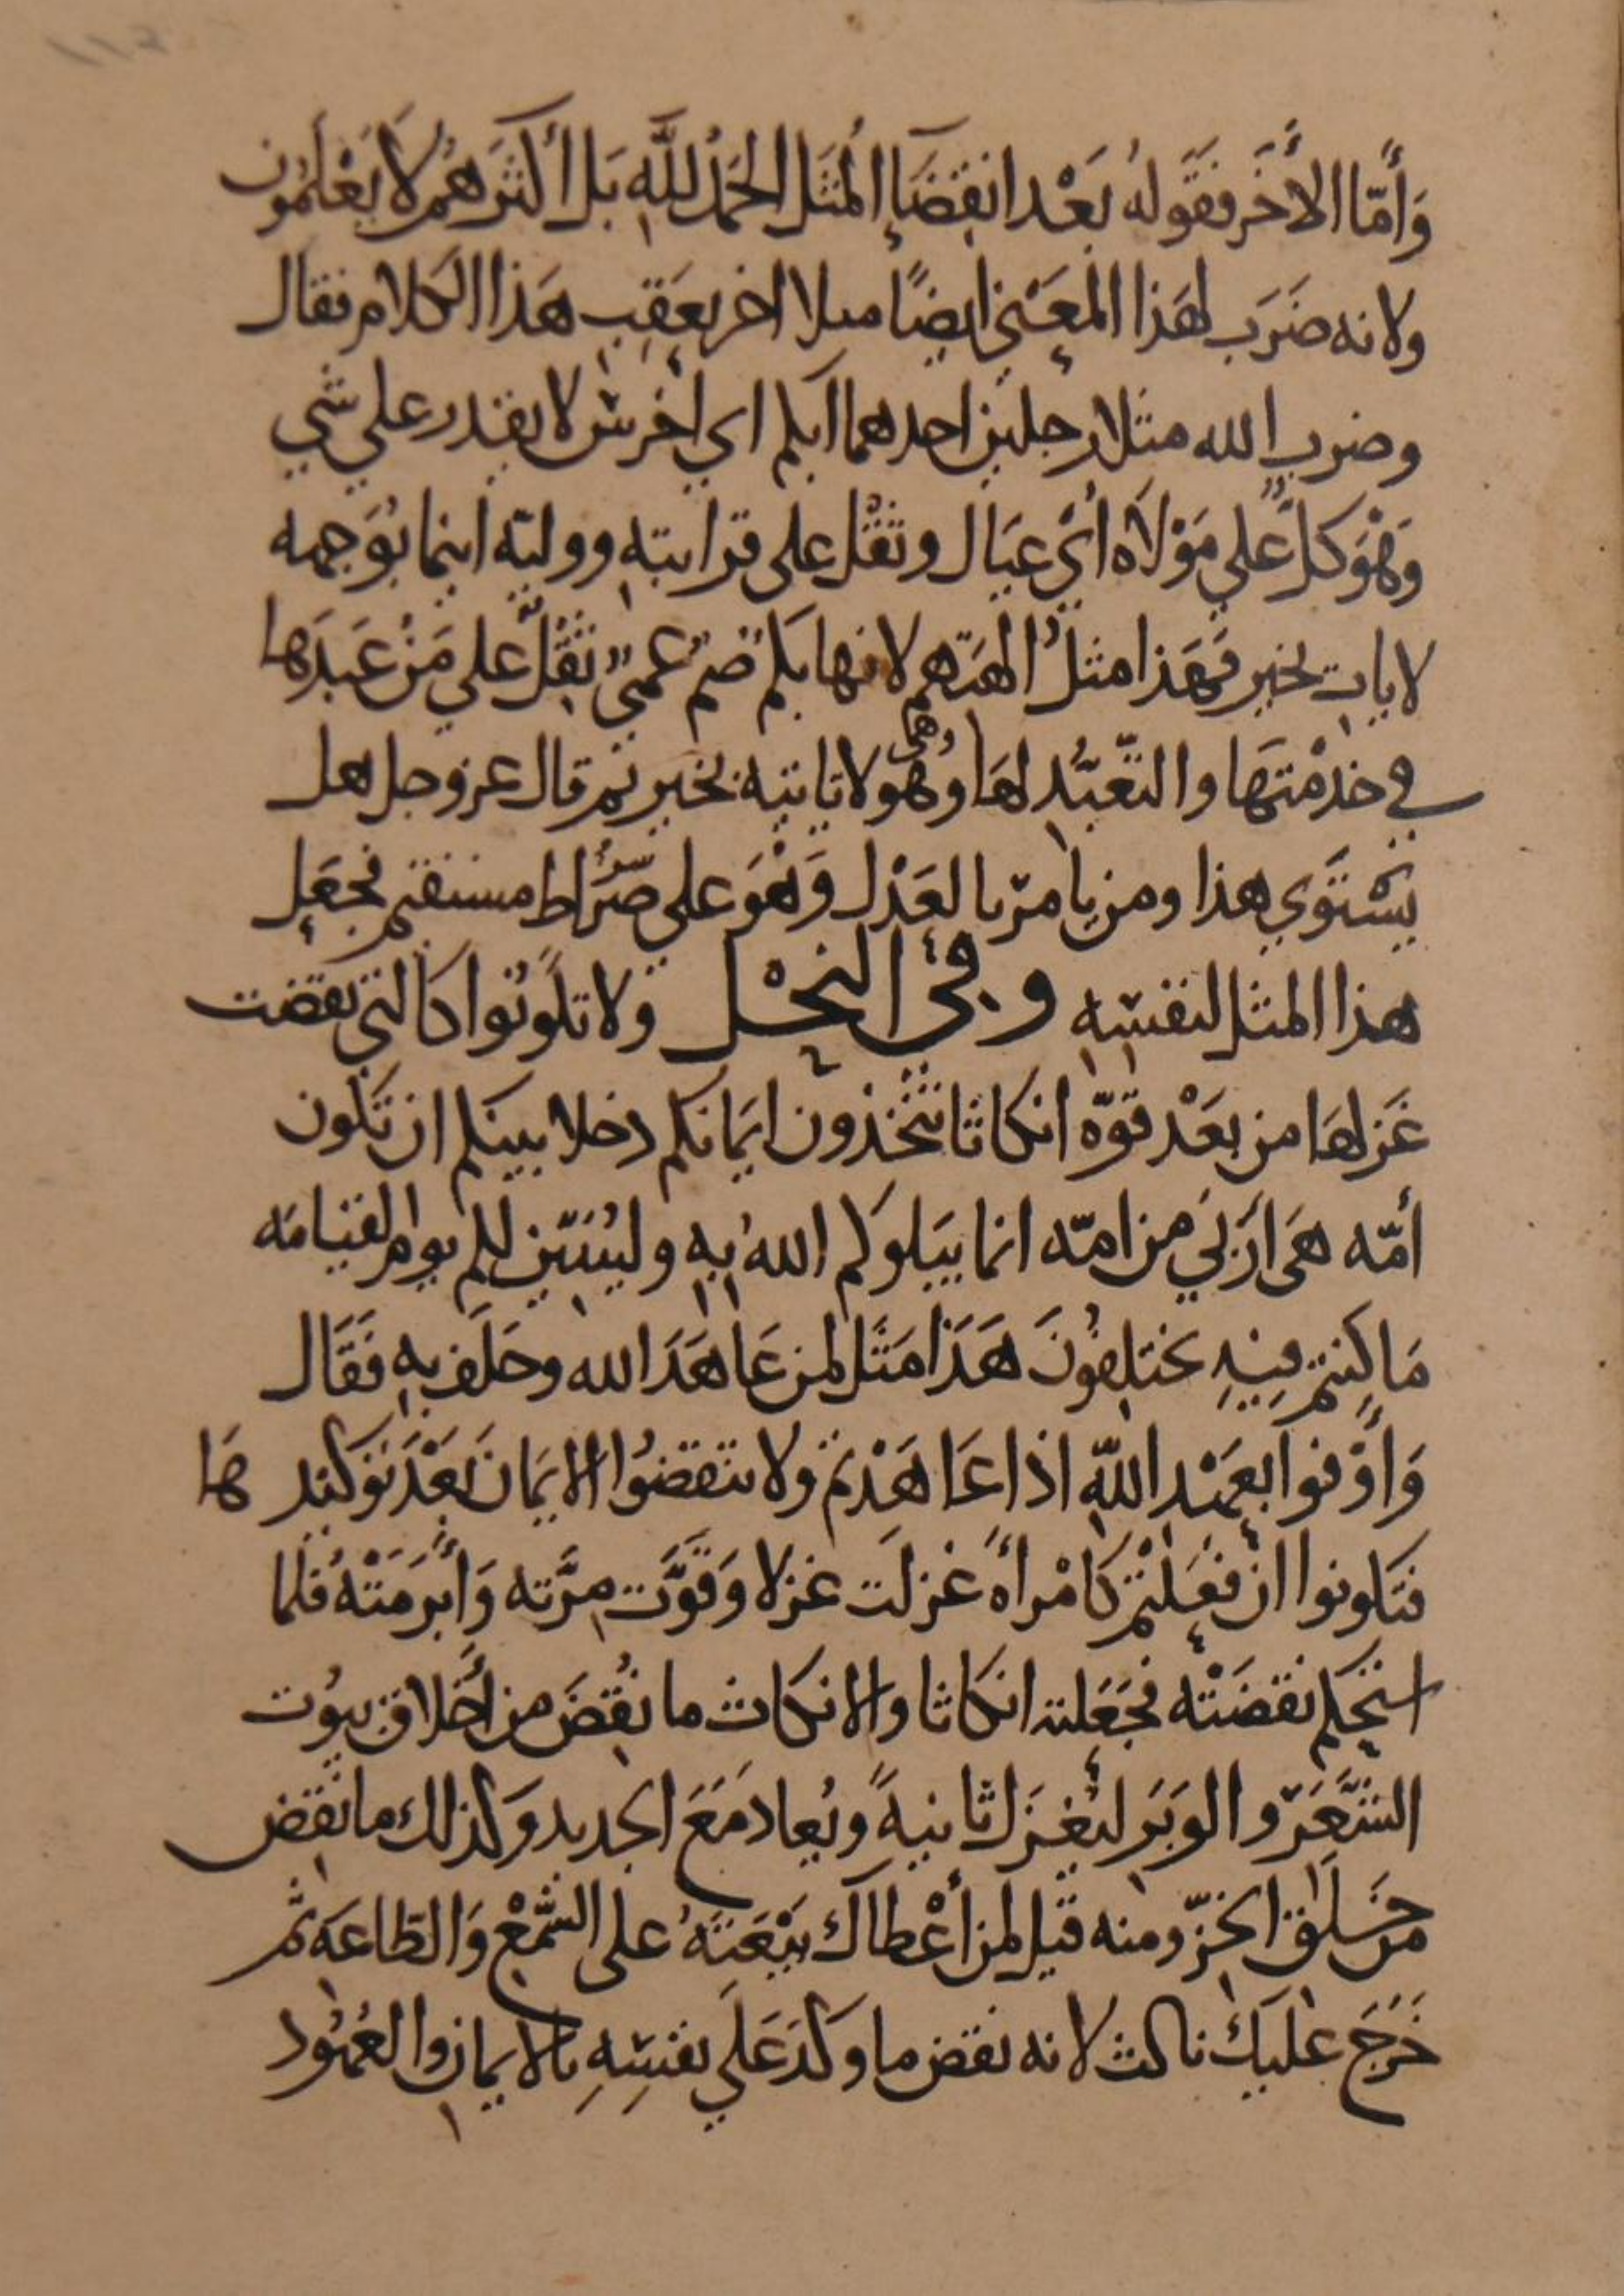 وَأَمَّا الأَخَر فقَولهُ بَعْد انقِضَاءِ المثَل الحَمْدُ للَّهِ بَل أكثَرهُم لَا يَعْلَمُون
ولانه ضَرَب لهَذا المعَني ايضًا مىلا اخر بعَقِب هَذا الكلام فقال
وضرب الله مثلا رجلين احدهما ابكم اي اخرس لا يقدر علي شي
وَهْوَ كلٌّ علي مَوْلَاه أيْ عيَال وثقْل على قرابتهِ ووليّه اينما يُوَجهه
لا يات بخير فهَذا مثلُ الهتهم لانها بكم صمٌّ عميٌ ثقْلٌ علي مَنْ عَبدَها
في خدْمتهَا والتّعبّدِ لهَا وهُو وهي لا تاتيه بخير ثم قال عز وجل هل
يَسْتَوي هذا ومن يامرُ بالعَدْل وَهْوَ علي صِرَاط مستقيم فجعَل
هذا المثل لنفسِه وفي النحْل ولا تكُونُوا كالتي نقضت
غَزلهَا من بعَدْ قوّه انكاثا تتخذون ايمَانكم دخلا بينكم ان تكون
أمّه هَى أرْبَي من امّه انما يبَلوكم اللهُ بِهِ وليُبَيّنن لكم يوم القيامَه
مَا كنتم فيهِ تختلِفُونَ هَذَا مَثَل لمن عَاهَدَ الله وحَلَف بهِ فَقَال
وَأَوْفوا بعِهَدِ اللهِ اذا عَاهَدْتم ولا تنقضُوا الايمَانَ بَعْدَ توكيدهَا
فتكونوا ان فعَلْتم كامْرأةٍ غزلَت غزلا وَقَوَّت مِرَّته وَأَبْرَمَتْهُ فلما
استحكم نقضَتْه فجَعَلته انكاثا والانكاث ما نُقِضَ من أخْلاق بيُوت
الشَّعَر والوَبَر ليُغزَل ثانيةً ويُعاد مَعَ الجديد وَكذلك ما نُقِض
من خَلَق الخزّ ومنه قيل لمن أعْطاك بَيْعَتَهُ على السَّمْع وَالطاعَه ثم
خَرَجَ عليَك ناكث لانه نقض ما وكدَ عَلَي نفسِهِ بالايمان والعُهُود